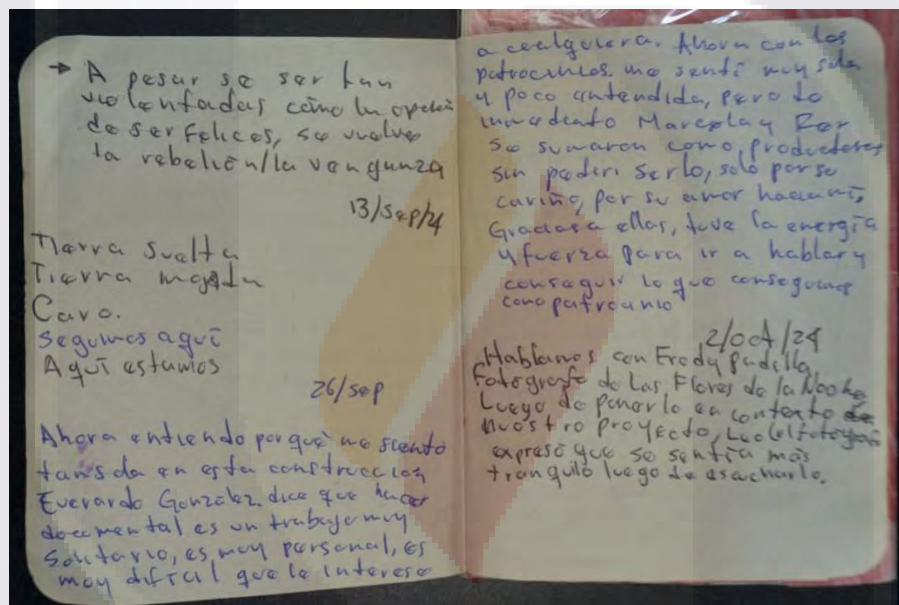 → A pesar se ser tan
violentadas cómo la opción
de ser felices, se vuelve
la rebelión/la venganza
13/sep/24
Tierra suelta
Tierra mojada
Cavo.
Seguimos aquí
Aquí estamos
26/sep
Ahora entiendo porqué me siento
tan sola en esta construcción
Everardo González dice que hacer
documental es un trabajo muy
solitario, es muy personal, es
muy difícil que le interese
a cualquiera. Ahora con los
patrocinios me sentí muy sola
y poco entendida, pero de
inmediato Marcela y Fer
se sumaron como productoras
sin pedir serlo, solo por su
cariño, por su amor hacia mí,
Gracias a ellas, tuve la energía
y fuerza para ir a hablar y
conseguir lo que conseguimos
como patrocinio
2/oct/24
Hablamos con Fredy Padilla
Fotógrafo de Las Flores de la Noche
Luego de ponerlo en contexto de
nuestro proyecto, Leo (el fotógrafo
expresó que se sentía más
tranquilo luego de escucharlo.